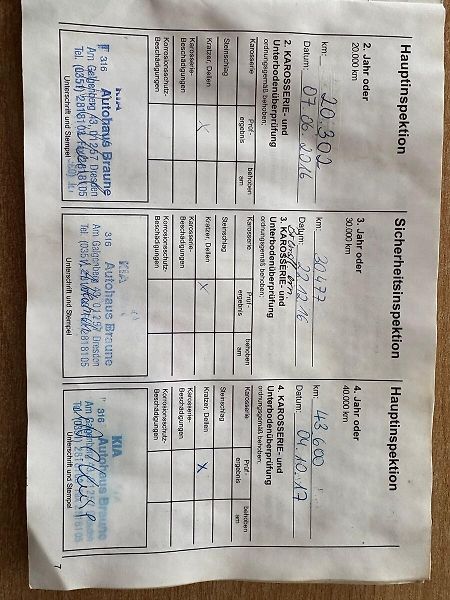 Hauptinspektion
2. Jahr oder
20.000 km
km: 20.302
Datum: 07.06.2016
2. KAROSSERIE- und
Unterbodenüberprüfung
ordnungsgemäß behoben:
Karosserie Prüf-ergebnis behoben am
Steinschlag
Kratzer, Dellen X
Karosserie-Beschädigungen
Korrosionsschutz-Beschädigungen
316 KIA
Autohaus Braune
Am Galgenberg 43, 01257 Dresden
Tel. (0351) 2818102 8105
Unterschrift und Stempel
Sicherheitsinspektion
3. Jahr oder
30.000 km
km: 30.477
Datum: 20.12.16
3. KAROSSERIE- und
Unterbodenüberprüfung
ordnungsgemäß behoben:
Karosserie Prüf-ergebnis behoben am
Steinschlag
Kratzer, Dellen X
Karosserie-Beschädigungen
Korrosionsschutz-Beschädigungen
316 KIA
Autohaus Braune
Dresden
Tel. (0351)
Unterschrift und Stempel
Hauptinspektion
4. Jahr oder
40.000 km
km: 43.600
Datum: 04.10.17
4. KAROSSERIE- und
Unterbodenüberprüfung
ordnungsgemäß behoben:
Karosserie Prüf-ergebnis behoben am
Steinschlag
Kratzer, Dellen X
Karosserie-Beschädigungen
Korrosionsschutz-Beschädigungen
316 KIA
Autohaus Braune
Am
Tel.
Unterschrift und Stempel
7